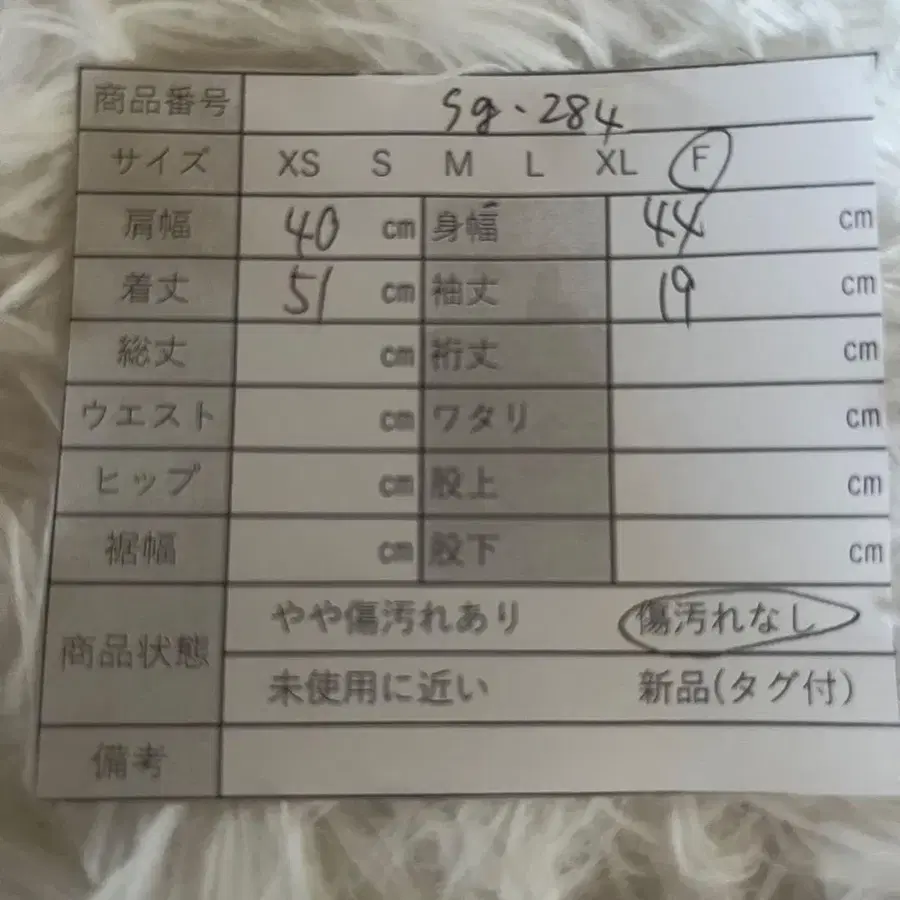 商品番号 Sg.284
サイズ XS S M L XL F
肩幅 40 cm 身幅 44 cm
着丈 51 cm 袖丈 19 cm
総丈 cm 裄丈 cm
ウエスト cm ワタリ cm
ヒップ cm 股上 cm
裾幅 cm 股下 cm
商品状態 やや傷汚れあり 傷汚れなし
未使用に近い 新品(タグ付)
備考